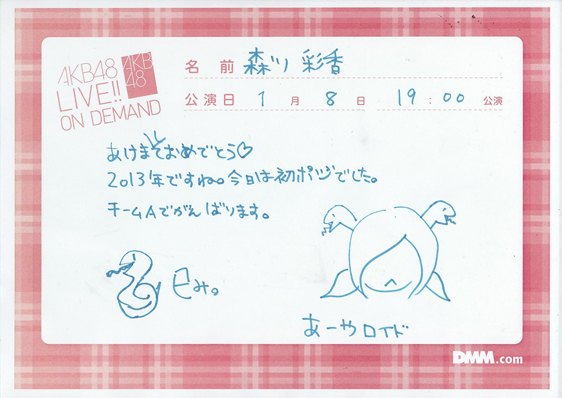 AKB48
LIVE!!
ON DEMAND
AKB
48
名 前 森川 彩香
公演日 1 月 8 日 19:00 公演
あけましておめでとう♡
2013年ですね。今日は初ポジでした。
チームAでがんばります。
巳み。
あーやロイド
DMM.com